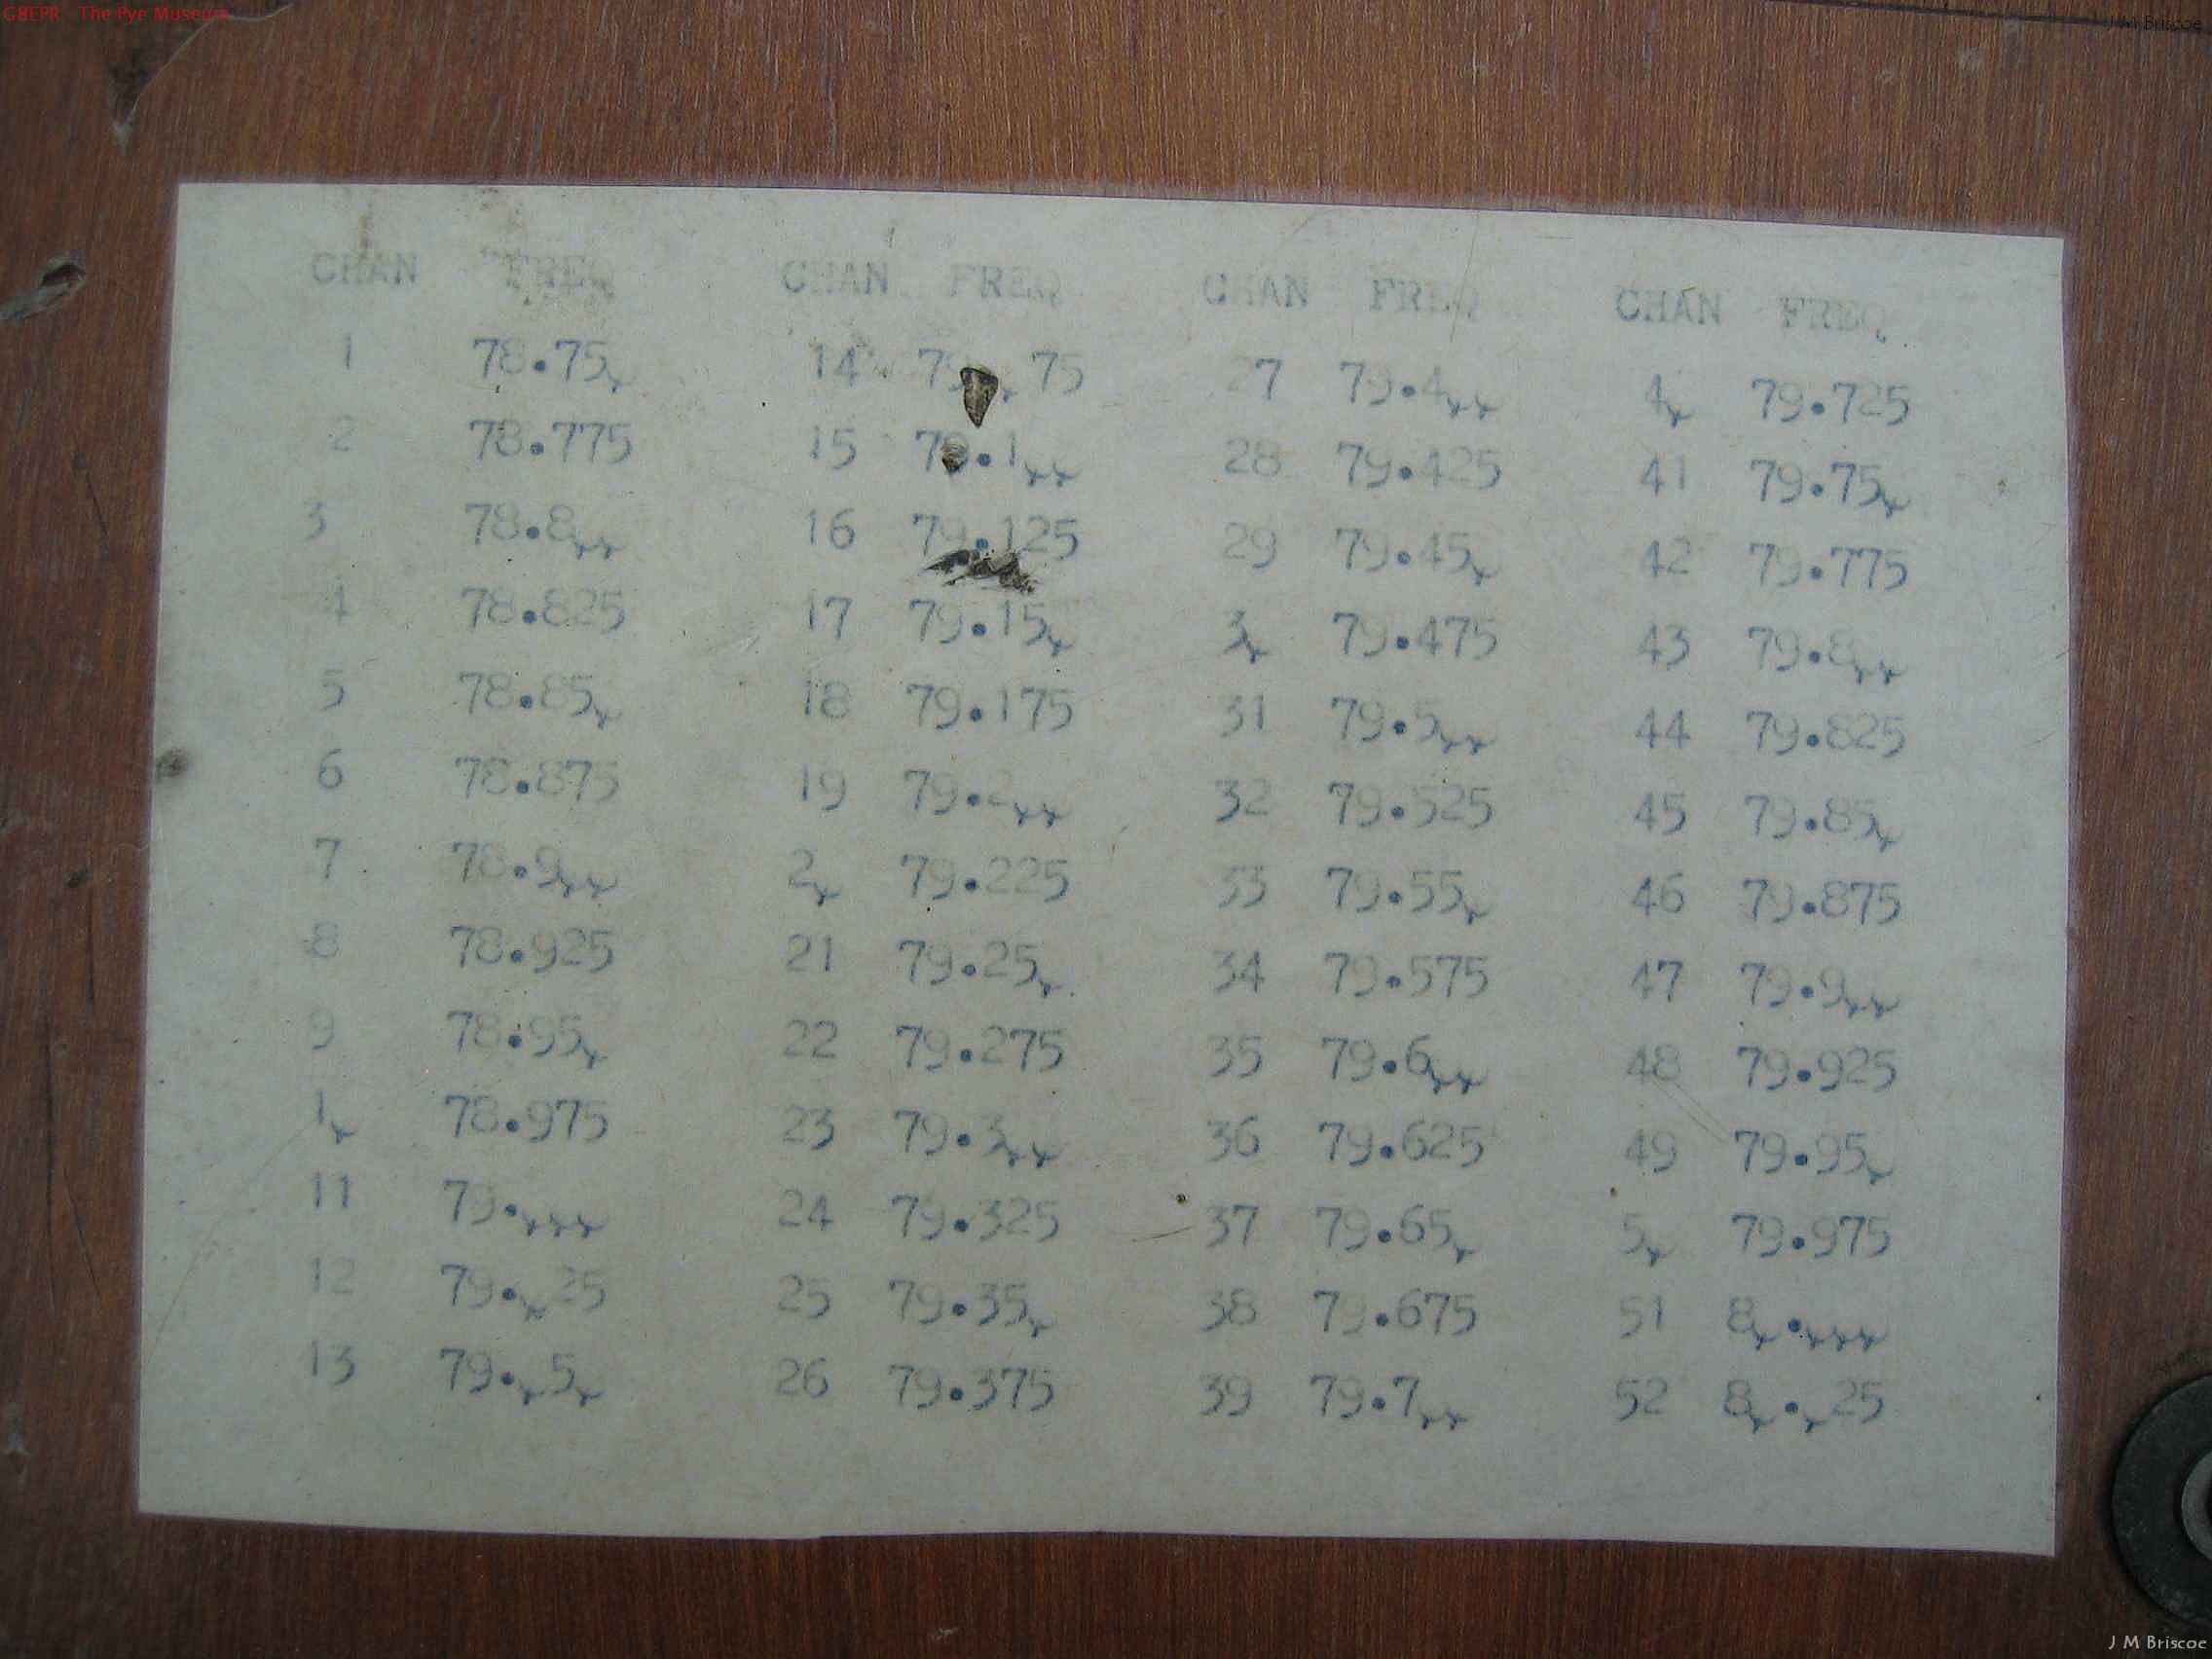 G8EPR The Pye Museum
J M Briscoe
CHAN FREQ CHAN FREQ CHAN FREQ CHAN FREQ
1 78.750 14 79.075 27 79.400 40 79.725
2 78.775 15 79.100 28 79.425 41 79.750
3 78.800 16 79.125 29 79.450 42 79.775
4 78.825 17 79.150 30 79.475 43 79.800
5 78.850 18 79.175 31 79.500 44 79.825
6 78.875 19 79.200 32 79.525 45 79.850
7 78.900 20 79.225 33 79.550 46 79.875
8 78.925 21 79.250 34 79.575 47 79.900
9 78.950 22 79.275 35 79.600 48 79.925
10 78.975 23 79.300 36 79.625 49 79.950
11 79.000 24 79.325 37 79.650 50 79.975
12 79.025 25 79.350 38 79.675 51 80.000
13 79.050 26 79.375 39 79.700 52 80.025
J M Briscoe